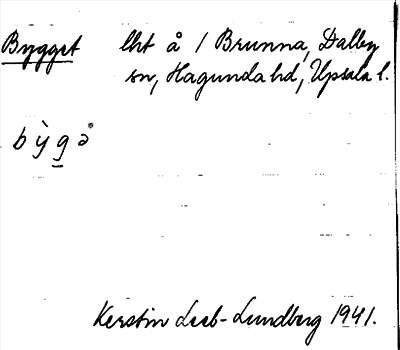 Bygget lht å / Brunna, Dalby
sn, Hagunda hd, Upsala l.
bỳgə
Kerstin Leeb-Lundberg 1941.